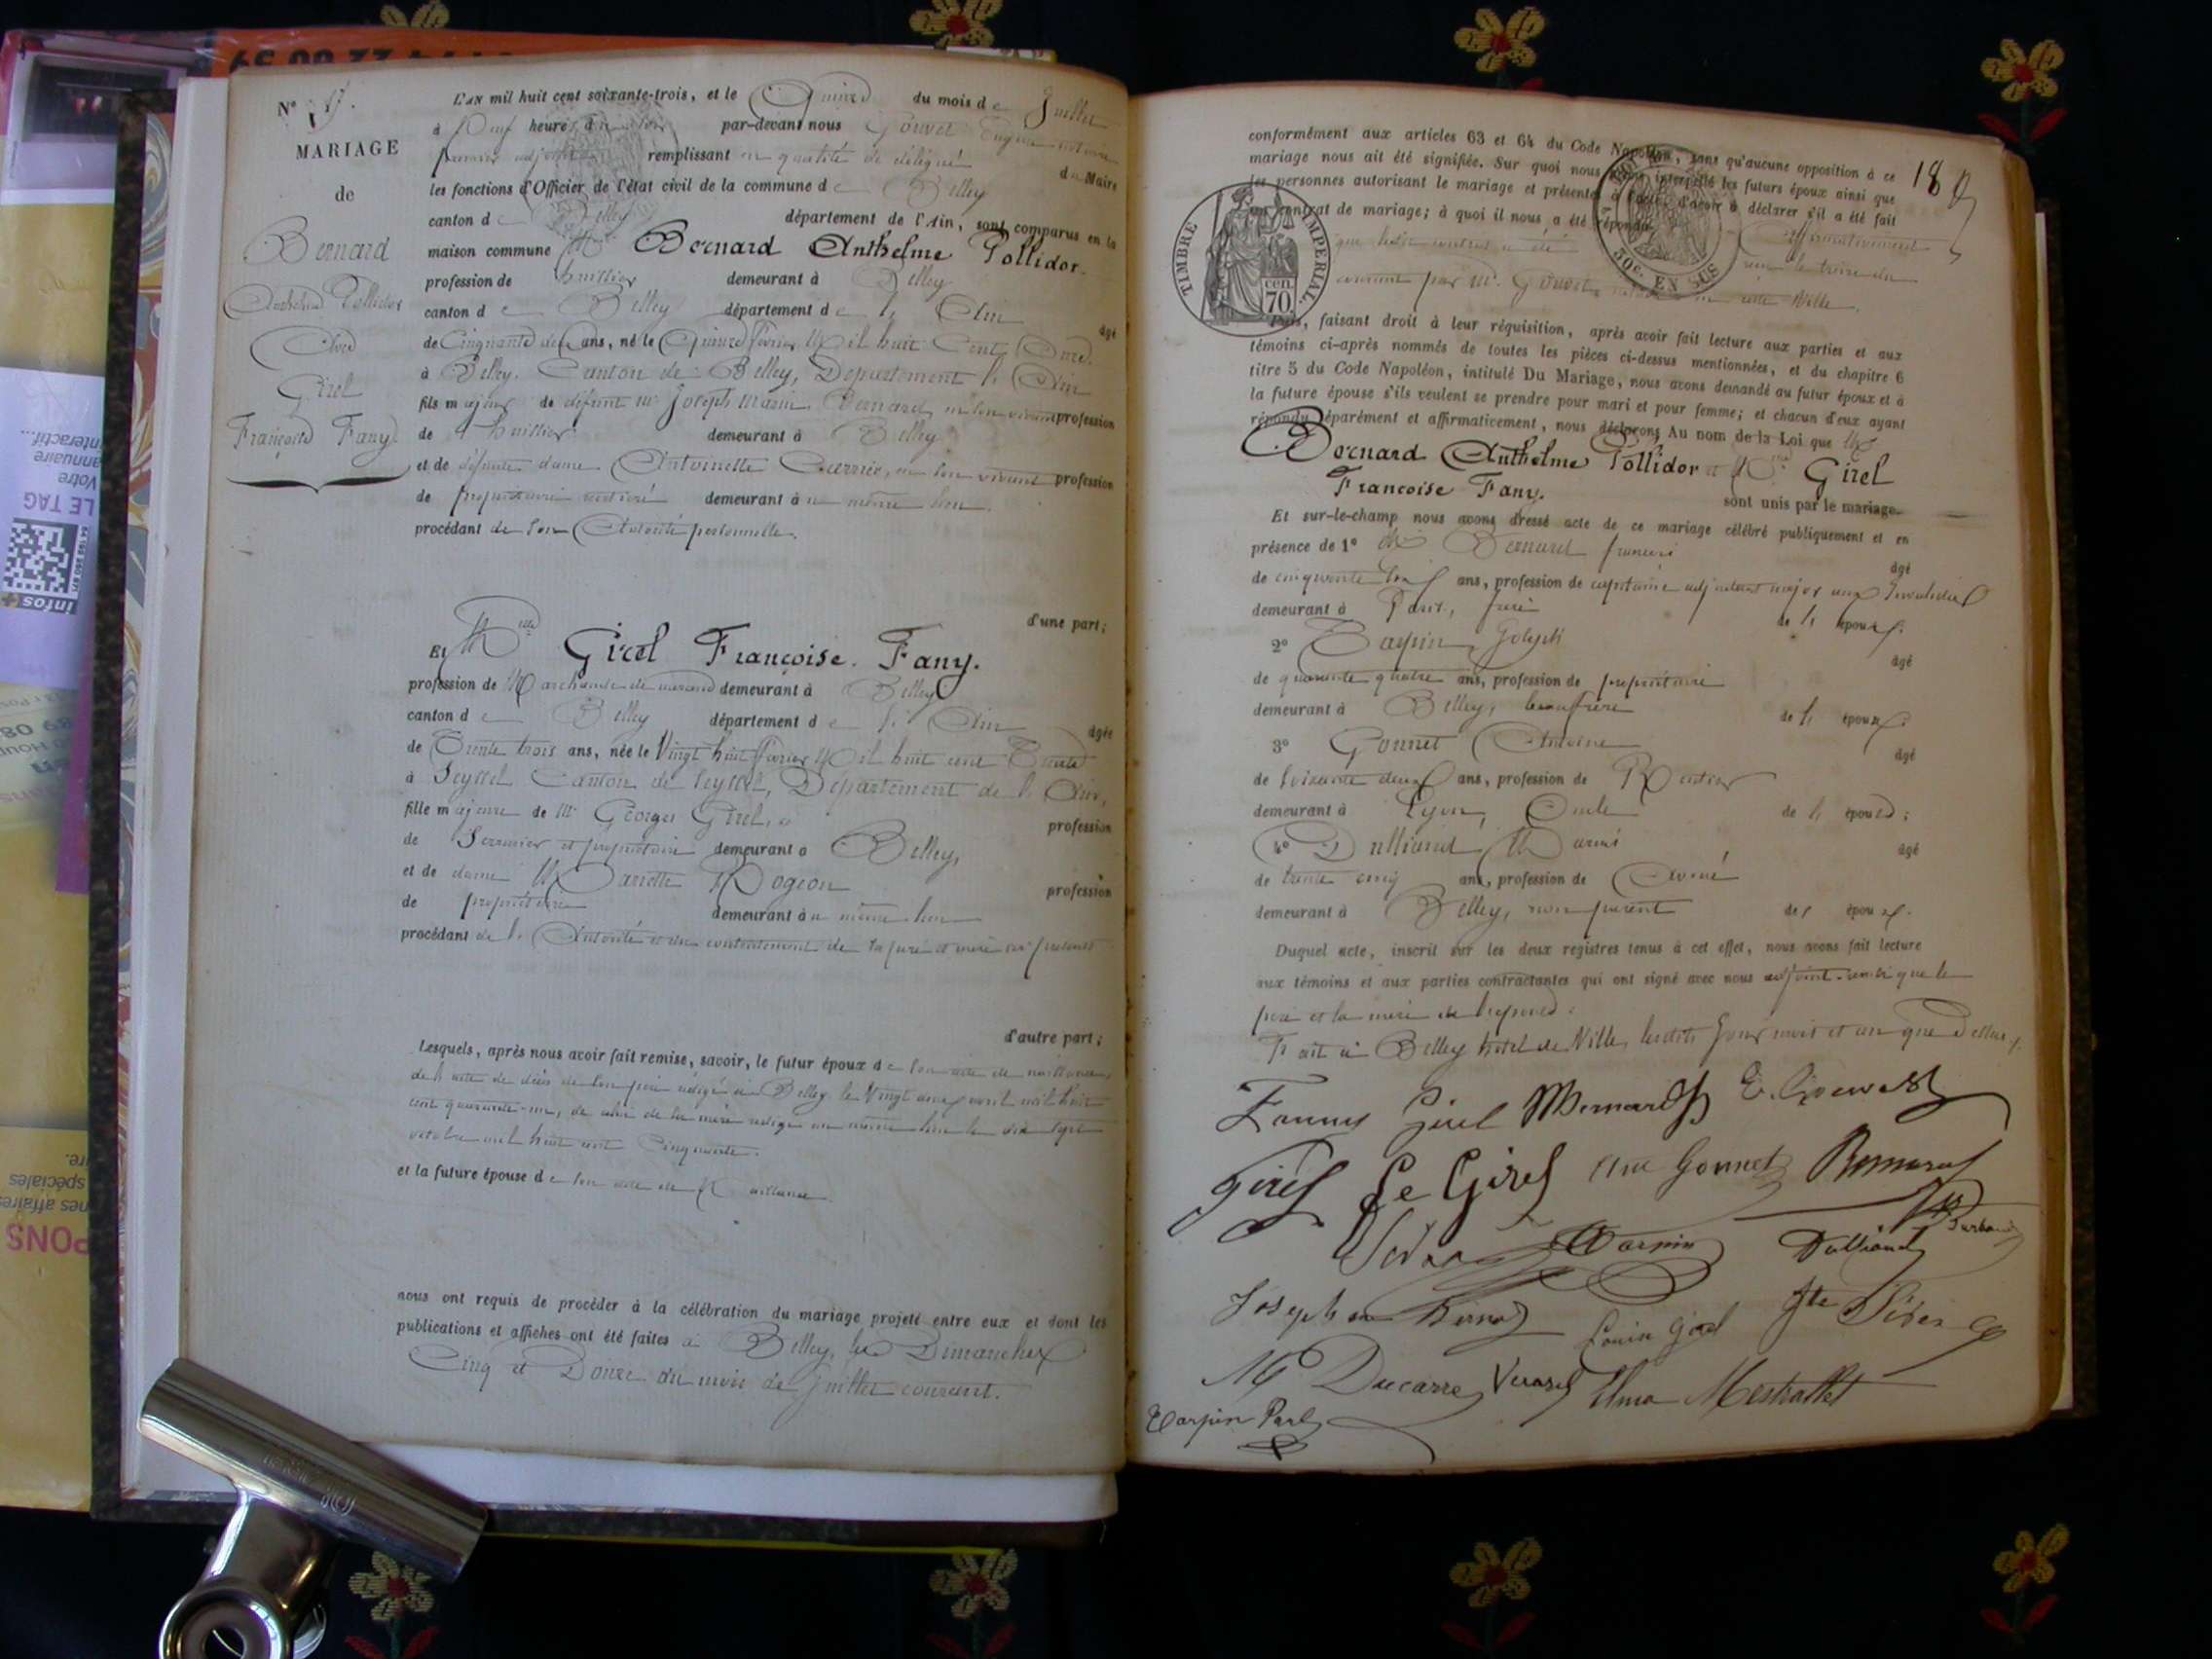 N° 
MARIAGE
de
Bernard
Anthelme Pollidor
Avec
Girel
Françoise Fany
L'AN mil huit cent soixante-trois, et le Quinze du mois de Juillet
à Neuf heures du soir par-devant nous Gouvet Eugène notaire
premier adjoint remplissant en qualité de délégué du Maire
les fonctions d'Officier de l'état civil de la commune de Belley
canton de Belley département de l'Ain, sont comparus en la
maison commune Mr Bernard Anthelme Pollidor.
profession de huissier demeurant à Belley
canton de Belley département de l'Ain âgé
de Cinquante deux ans, né le Quinze février Mil huit Cent Onze.
à Belley. Canton de Belley, Département de l'Ain
fils majeur de défunt mr Joseph Marin Bernard, en son vivant profession
de huissier demeurant à Belley
et de défunte dame Antoinette en son vivant profession
de propriétaire rentière demeurant au même lieu.
procédant de son Autorité personnelle.
d'une part;
Et Mlle Girel Françoise. Fany.
profession de Marchande de demeurant à Belley
canton de Belley département de l'Ain âgée
de Trente trois ans, née le Vingt huit février Mil huit cent Trente
à Seyssel Canton de Seyssel, Département de l'Ain,
fille majeure de Mr Georges Girel, profession
de Serrurier et propriétaire demeurant à Belley,
et de dame Mariette Rogeon profession
de propriétaire demeurant au même lieu
procédant de l'Autorité et du consentement de ses père et mère ici présents
d'autre part;
Lesquels, après nous avoir fait remise, savoir, le futur époux de son acte de naissance,
de l'acte de décès de son père rédigé à Belley le Vingt deux avril mil huit
cent quarante-un, de celui de sa mère rédigé au même lieu le dix sept
octobre mil huit cent Cinquante.
et la future épouse de son acte de Naissance
nous ont requis de procéder à la célébration du mariage projeté entre eux et dont les
publications et affiches ont été faites à Belley, les Dimanches
Cinq et Douze du mois de Juillet courant.
18
conformément aux articles 63 et 64 du Code Napoléon, sans qu'aucune opposition à ce
mariage nous ait été signifiée. Sur quoi nous avons interpellé les futurs époux ainsi que
les personnes autorisant le mariage et présentes à l'acte, d'avoir à déclarer s'il a été fait
un contrat de mariage; à quoi il nous a été répondu Affirmativement
que ledit contrat a été reçu le treize du
courant par Mr. Gouvet, notaire en cette Ville.
TIMBRE IMPERIAL.
cen. 70
50c. EN SUS
Puis, faisant droit à leur réquisition, après avoir fait lecture aux parties et aux
témoins ci-après nommés de toutes les pièces ci-dessus mentionnées, et du chapitre 6
titre 5 du Code Napoléon, intitulé Du Mariage, nous avons demandé au futur époux et à
la future épouse s'ils veulent se prendre pour mari et pour femme; et chacun d'eux ayant
répondu séparément et affirmativement, nous déclarons Au nom de la Loi que Mr
Bernard Anthelme Pollidor et Mlle Girel
Françoise Fany. sont unis par le mariage.
Et sur-le-champ nous avons dressé acte de ce mariage célébré publiquement et en
présence de 1° Mr Bernard francois âgé
de cinquante trois ans, profession de capitaine adjudant major aux Invalides
demeurant à Paris, frère de l' époux.
2° Tarpin Joseph âgé
de quarante quatre ans, profession de propriétaire
demeurant à Belley, beaufrère de l' époux.
3° Gonnet Antoine âgé
de soixante deux ans, profession de Rentier
demeurant à Lyon, Oncle de l' épouse;
4° Dulliand Marius âgé
de trente cinq ans, profession de Avoué
demeurant à Belley, non parent des époux.
Duquel acte, inscrit sur les deux registres tenus à cet effet, nous avons fait lecture
aux témoins et aux parties contractantes qui ont signé avec nous adjoint. ainsi que le
père et la mère de l'épouse.
Fait à Belley hôtel de Ville, lesdits Jour mois et an que Dessus
Fanny Girel Bernard E. Gouvet
Girel Fe Girel Gonnet Bernard
Tarpin Dulliand
Joseph Louis Girel
Ducarre Mestrallet
Tarpin Paul
Votre
annuaire
interactif...
LE TAG
infos